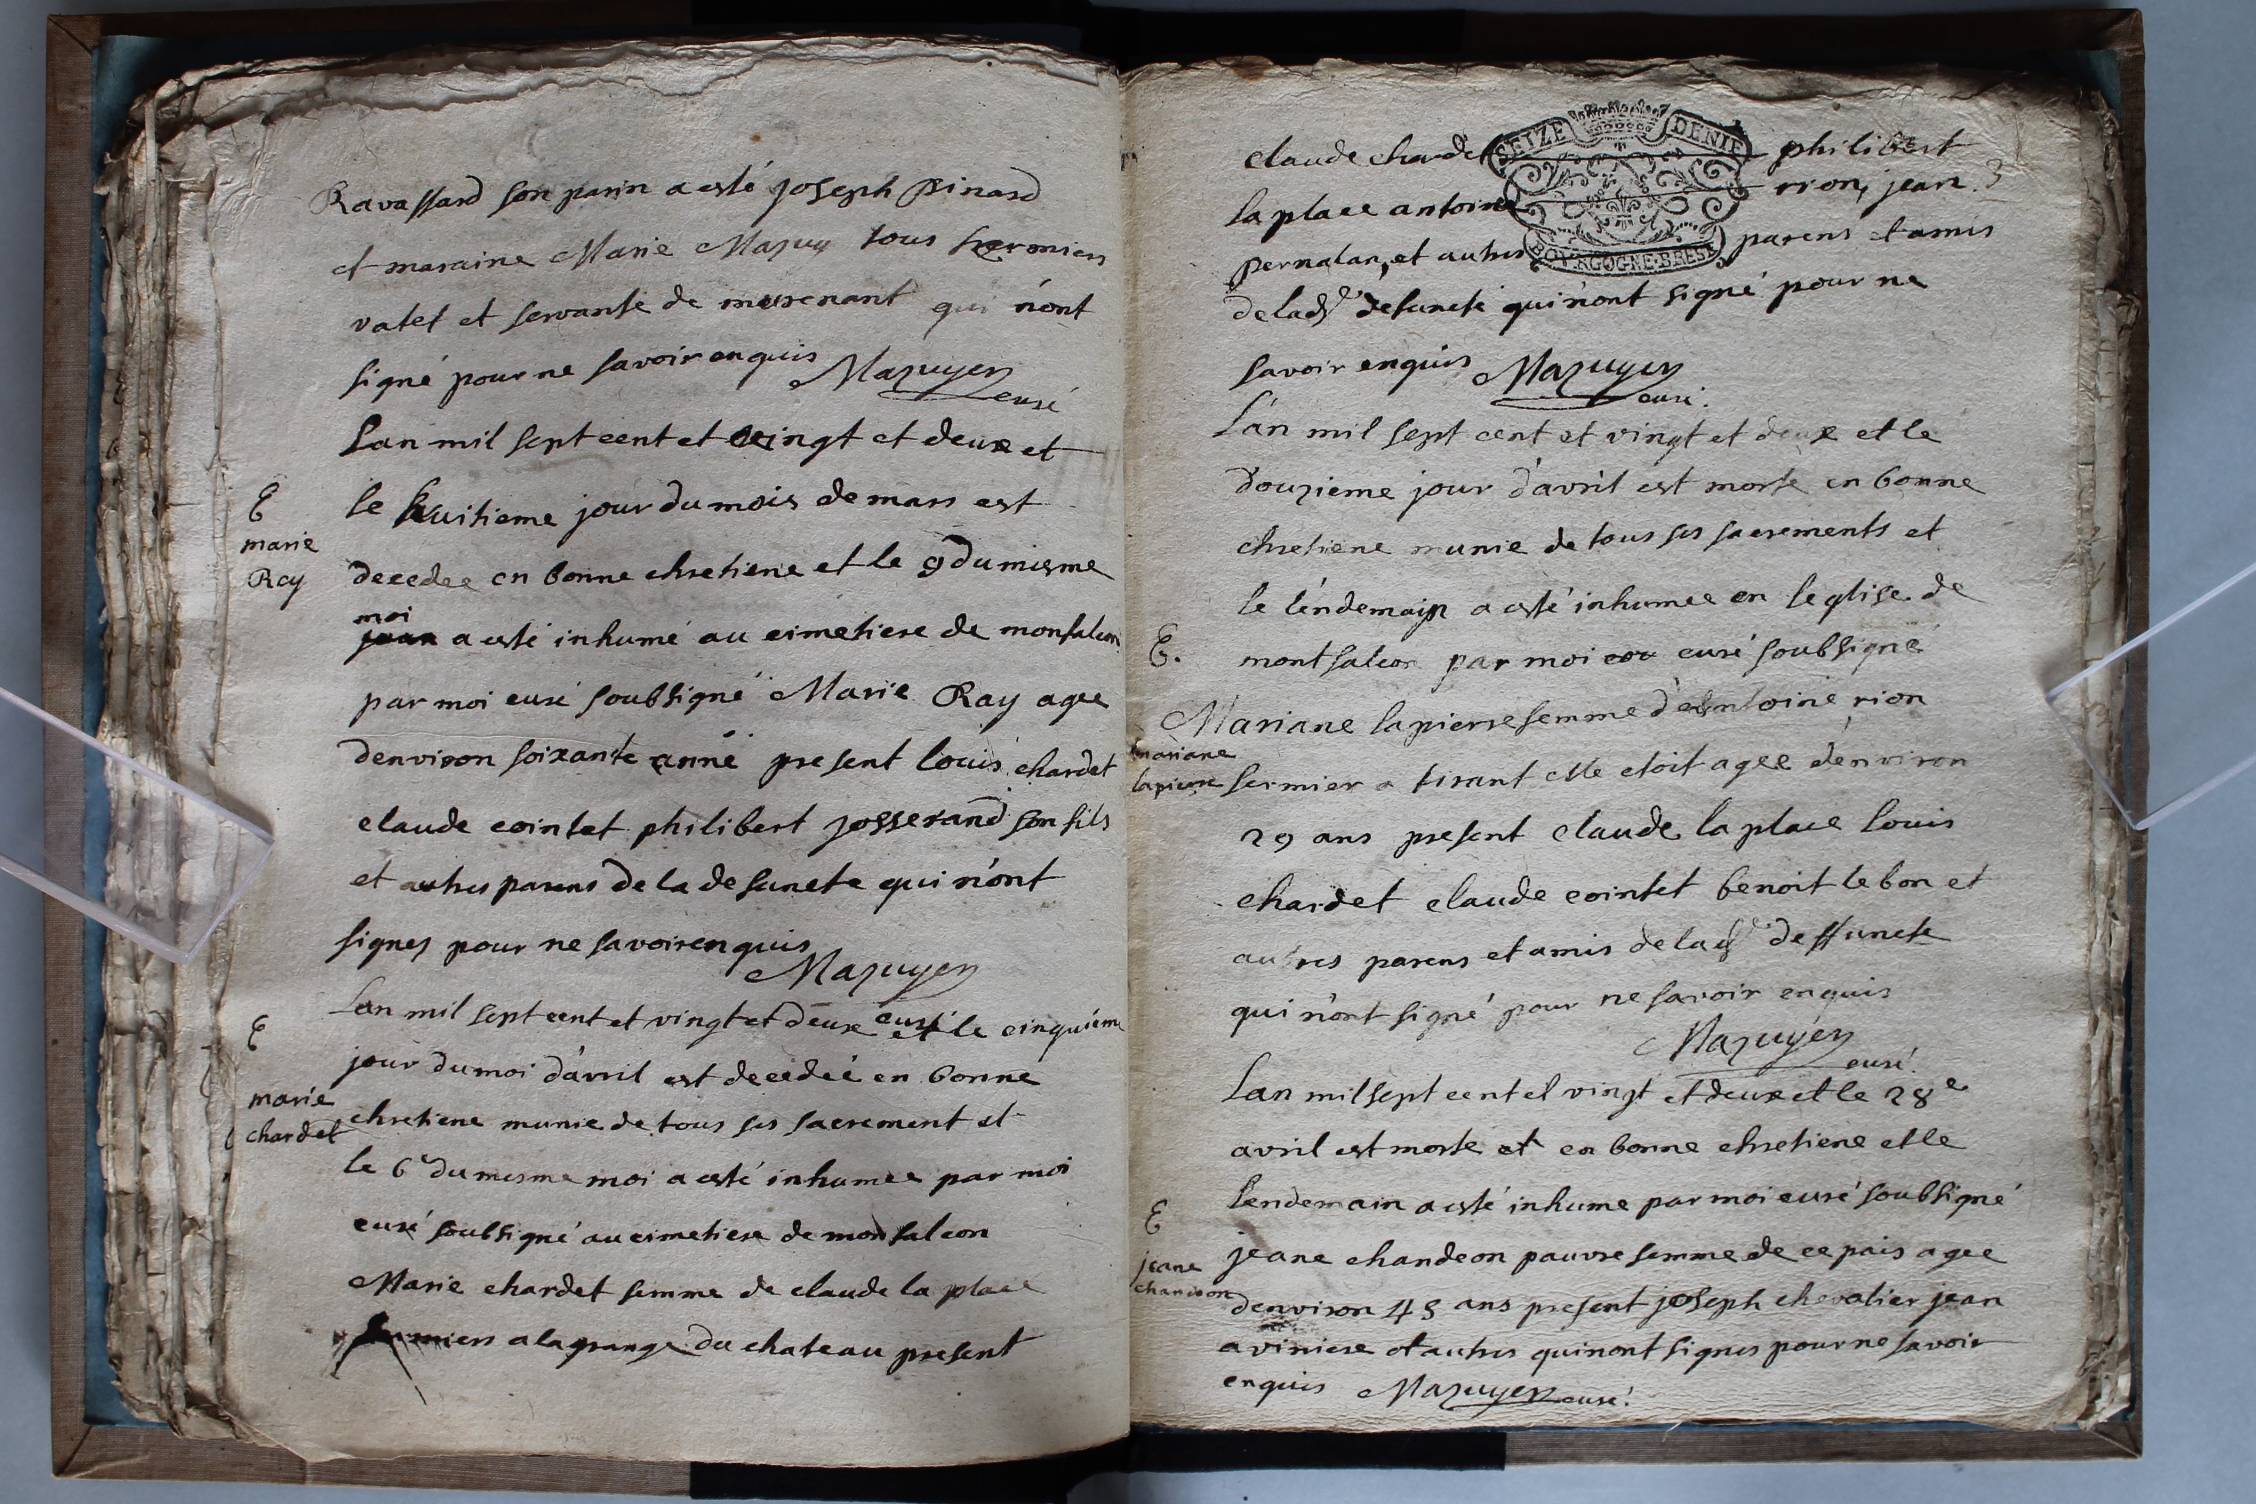 Ravassard son parin a esté joseph Pinard
et maraine Marie Mazuy tous
valet et servante de qui n'ont
signé pour ne savoir enquis Mazuyer
curé
Lan mil sept cent et vingt et deux et
E
marie
Rey
le huitieme jour du mois de mars est
decedee en bonne chretiene et le 9 du misme
moi
a esté inhumé au cimetiere de monfalcon
par moi curé soubsigné Marie Ray agee
denviron soixante anné present louis chardet
claude cointet philibert josserand son fils
et autres parens de la defuncte qui n'ont
signes pour ne savoir enquis
Mazuyer
curé
Lan mil sept cent et vingt et deux et le cinquieme
E
marie
chardet
jour du moi d'avril est decedeé en bonne
chretiene munie de tous ses sacrement et
le 6e du mesme moi a esté inhumee par moi
curé soubsigné au cimetiere de monfalcon
Marie chardet femme de claude la place
a la grange du chateau present
claude chardet philibert
la place antoine rion, jean
3
pernalan, et autres parens et amis
SEIZE DENIE
BOURGOGNE·BRESE
de lad defuncte qui n'ont signé pour ne
savoir enquis Mazuyer
curé.
L'an mil sept cent et vingt et deux et le
douzieme jour d'avril est morte en bonne
chretiene munie de tous ses sacrements et
le l'endemain a esté inhumee en l'eglise de
E.
mariane
lapierre
montfalcon par moi curé soubsigné
Mariane lapierre femme d'antoine rion
fermier a tirant elle etoit agee d'environ
29 ans present claude la place louis
chardet claude cointet benoit lebon et
autres parens et amis de lad deffuncte
qui n'ont signé pour ne savoir enquis
Mazuyer
curé.
Lan mil sept cent et vingt et deux et le 28e
avril est morte et en bonne chretiene et le
lendemain a esté inhume par moi curé soubsigné
E
jeane
chandeon
jeane chandeon pauvre femme de ce pais agee
denviron 45 ans present joseph chevalier jean
aviniere et autres qui nont signes pour ne savoir
enquis Mazuyer curé.